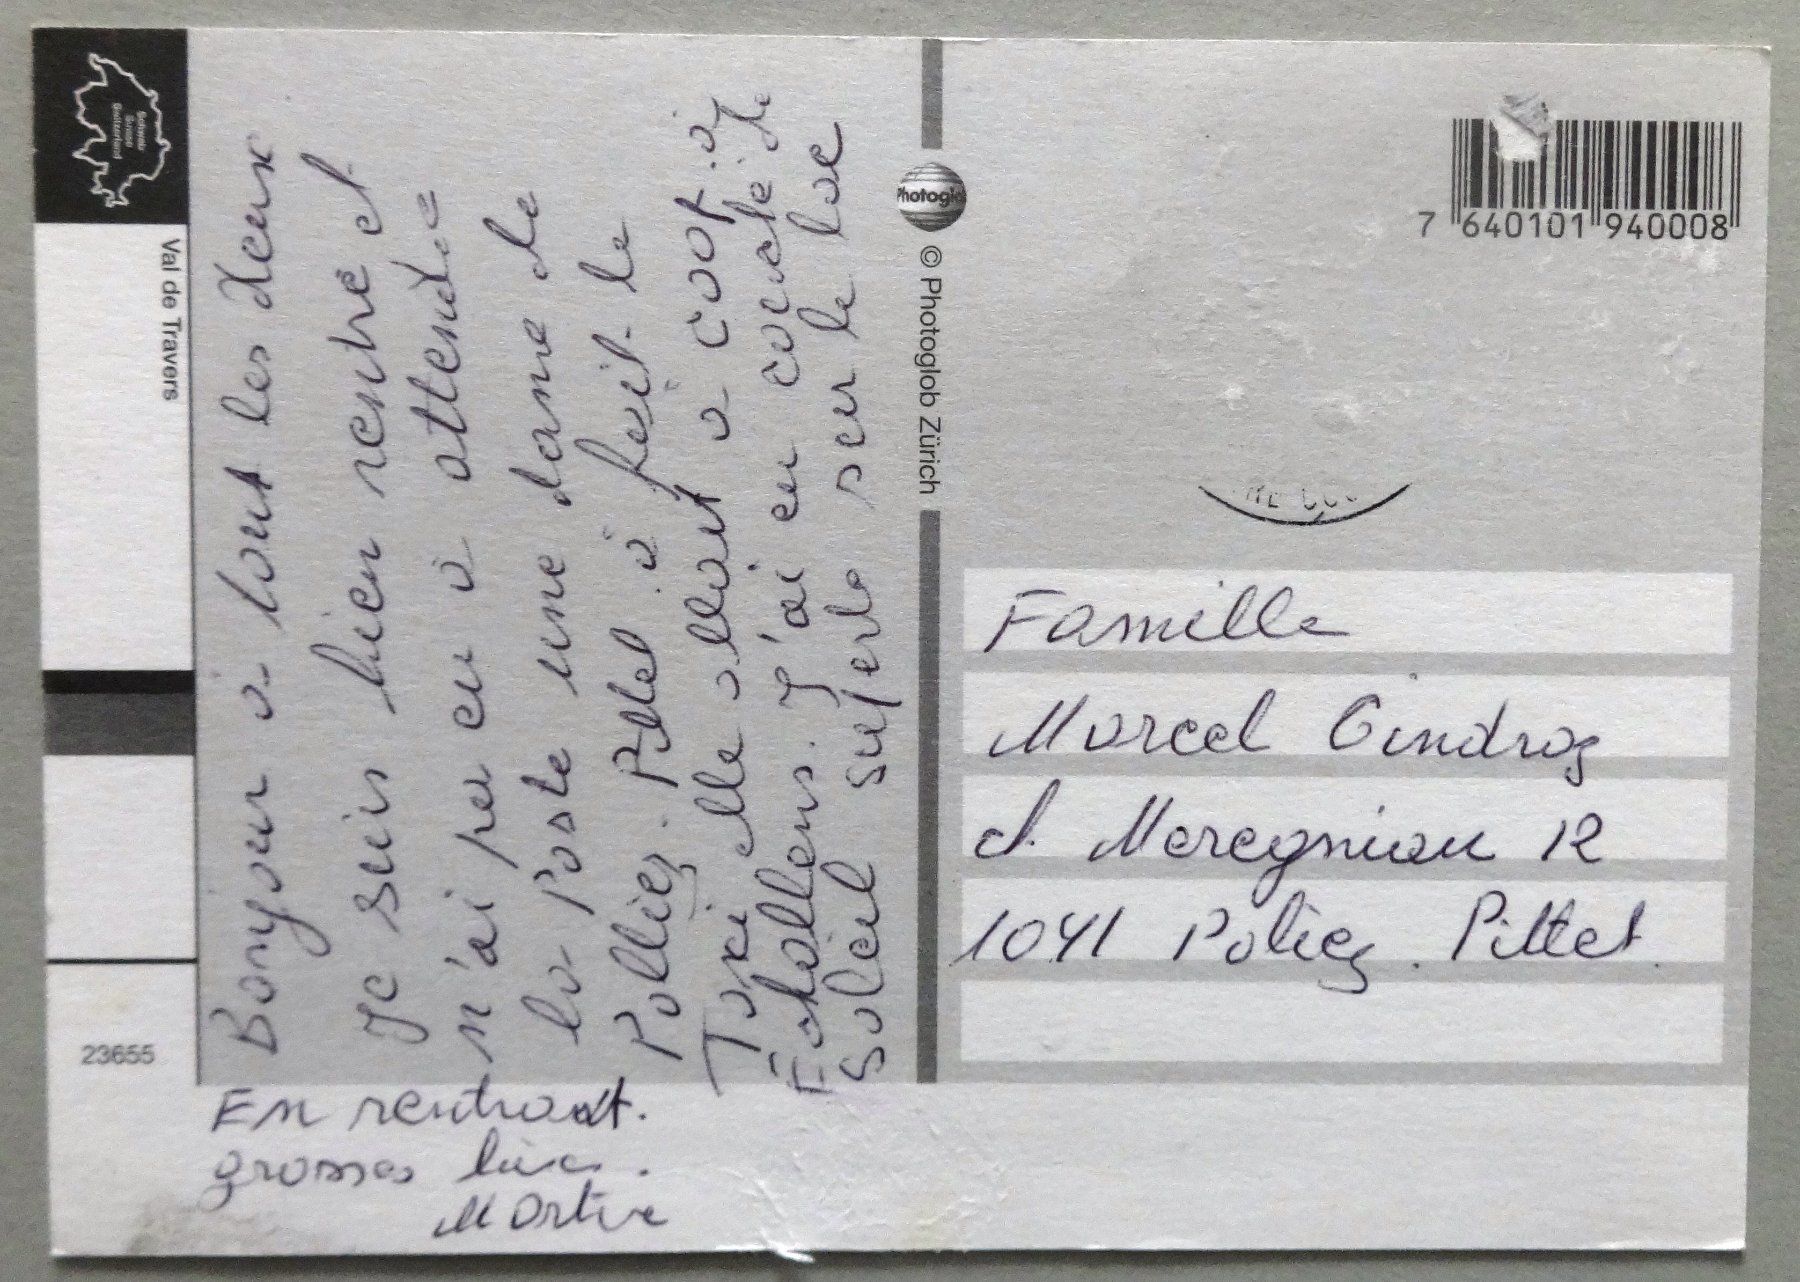 Schweiz
Suisse
Switzerland
Val de Travers
23655
Bonjour à tout les deux
Je suis bien rentré et
n'ai pas eu à attendre
la Poste une dame de
Polliez. Pittet à fait le
Taxi elle allait à coop à
Echallens. J'ai eu couché de
Soleil superbe sur le lac
En rentrant.
grosses bises.
Martine
Photoglob
© Photoglob Zürich
7 640101 940008
Famille
Marcel Gindroz
ch. Meregniau 12
1041 Poliez. Pittet.